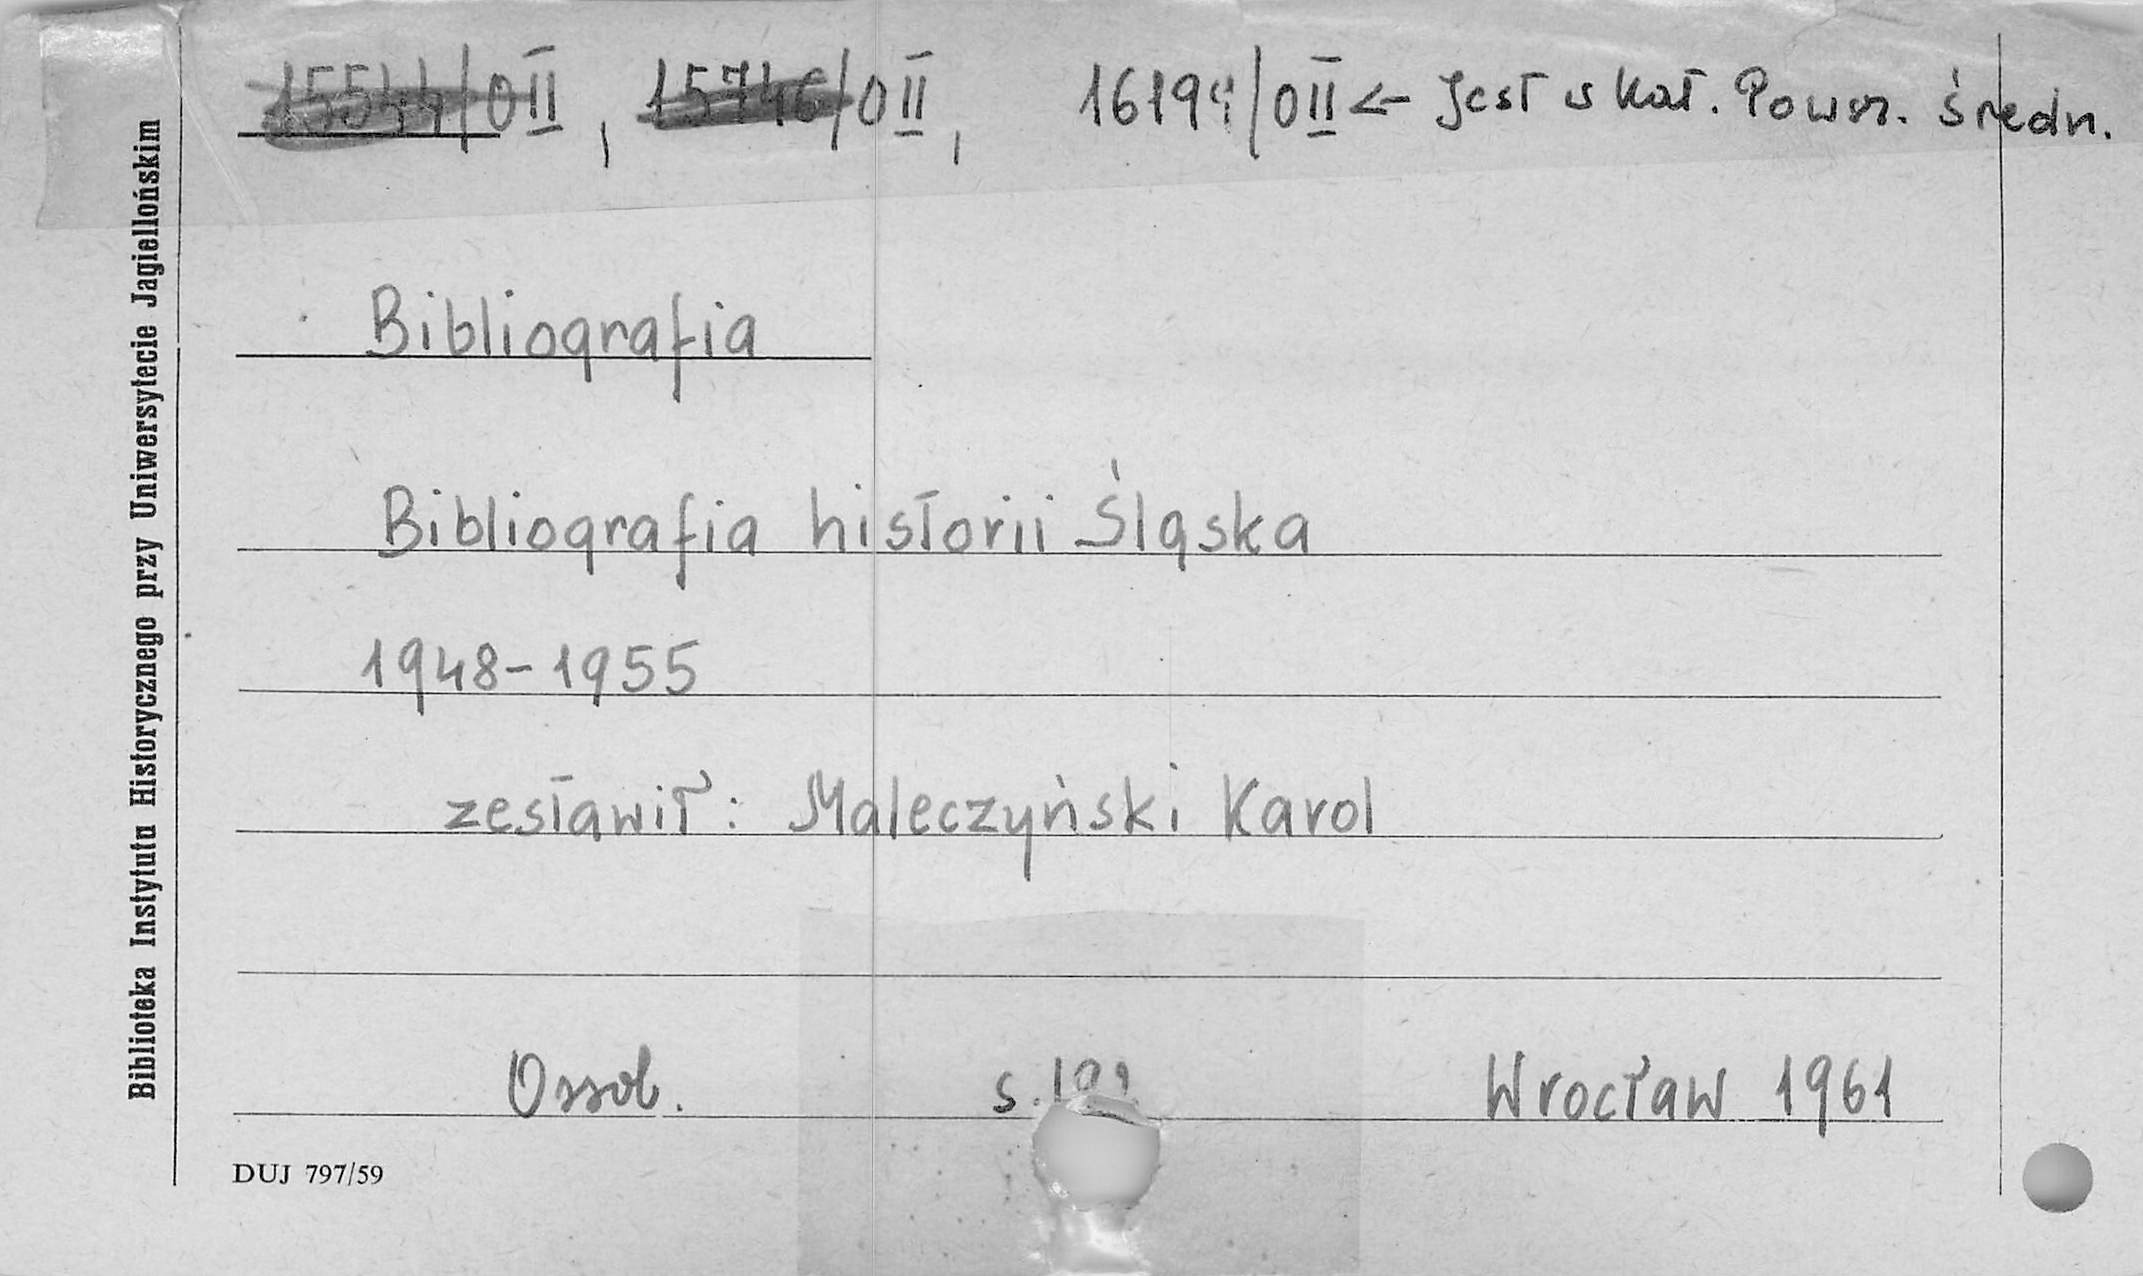 15544/OII, 15746/OII, 16194/OII ← Jest w Kat. Powsz. Średn.
Bibliografia
Bibliografia historii Śląska
1948-1955
zestawił: Maleczyński Karol
Ossol. s. Wrocław 1961
DUJ 797/59
Biblioteka Instytutu Historycznego przy Uniwersytecie Jagiellońskim